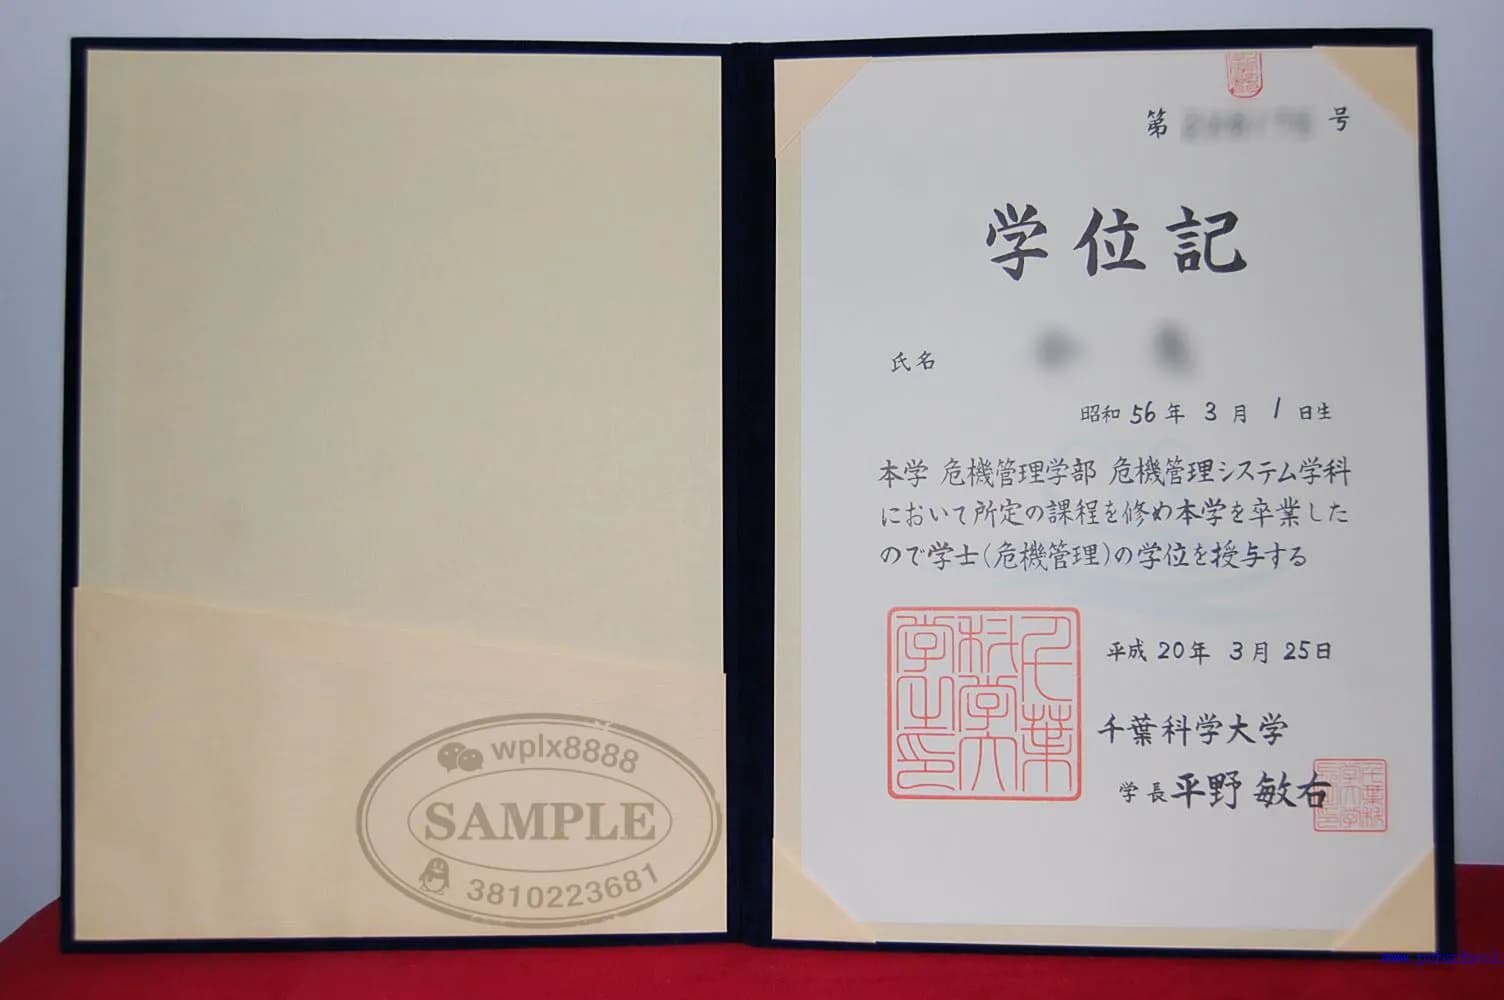 wplx8888
SAMPLE
3810223681
第 号
学位記
氏名
昭和56年3月1日生
本学 危機管理学部 危機管理システム学科
において所定の課程を修め本学を卒業した
ので学士(危機管理)の学位を授与する
平成20年3月25日
千葉科学大学
学長 平野敏右
千葉
科学大
学之印